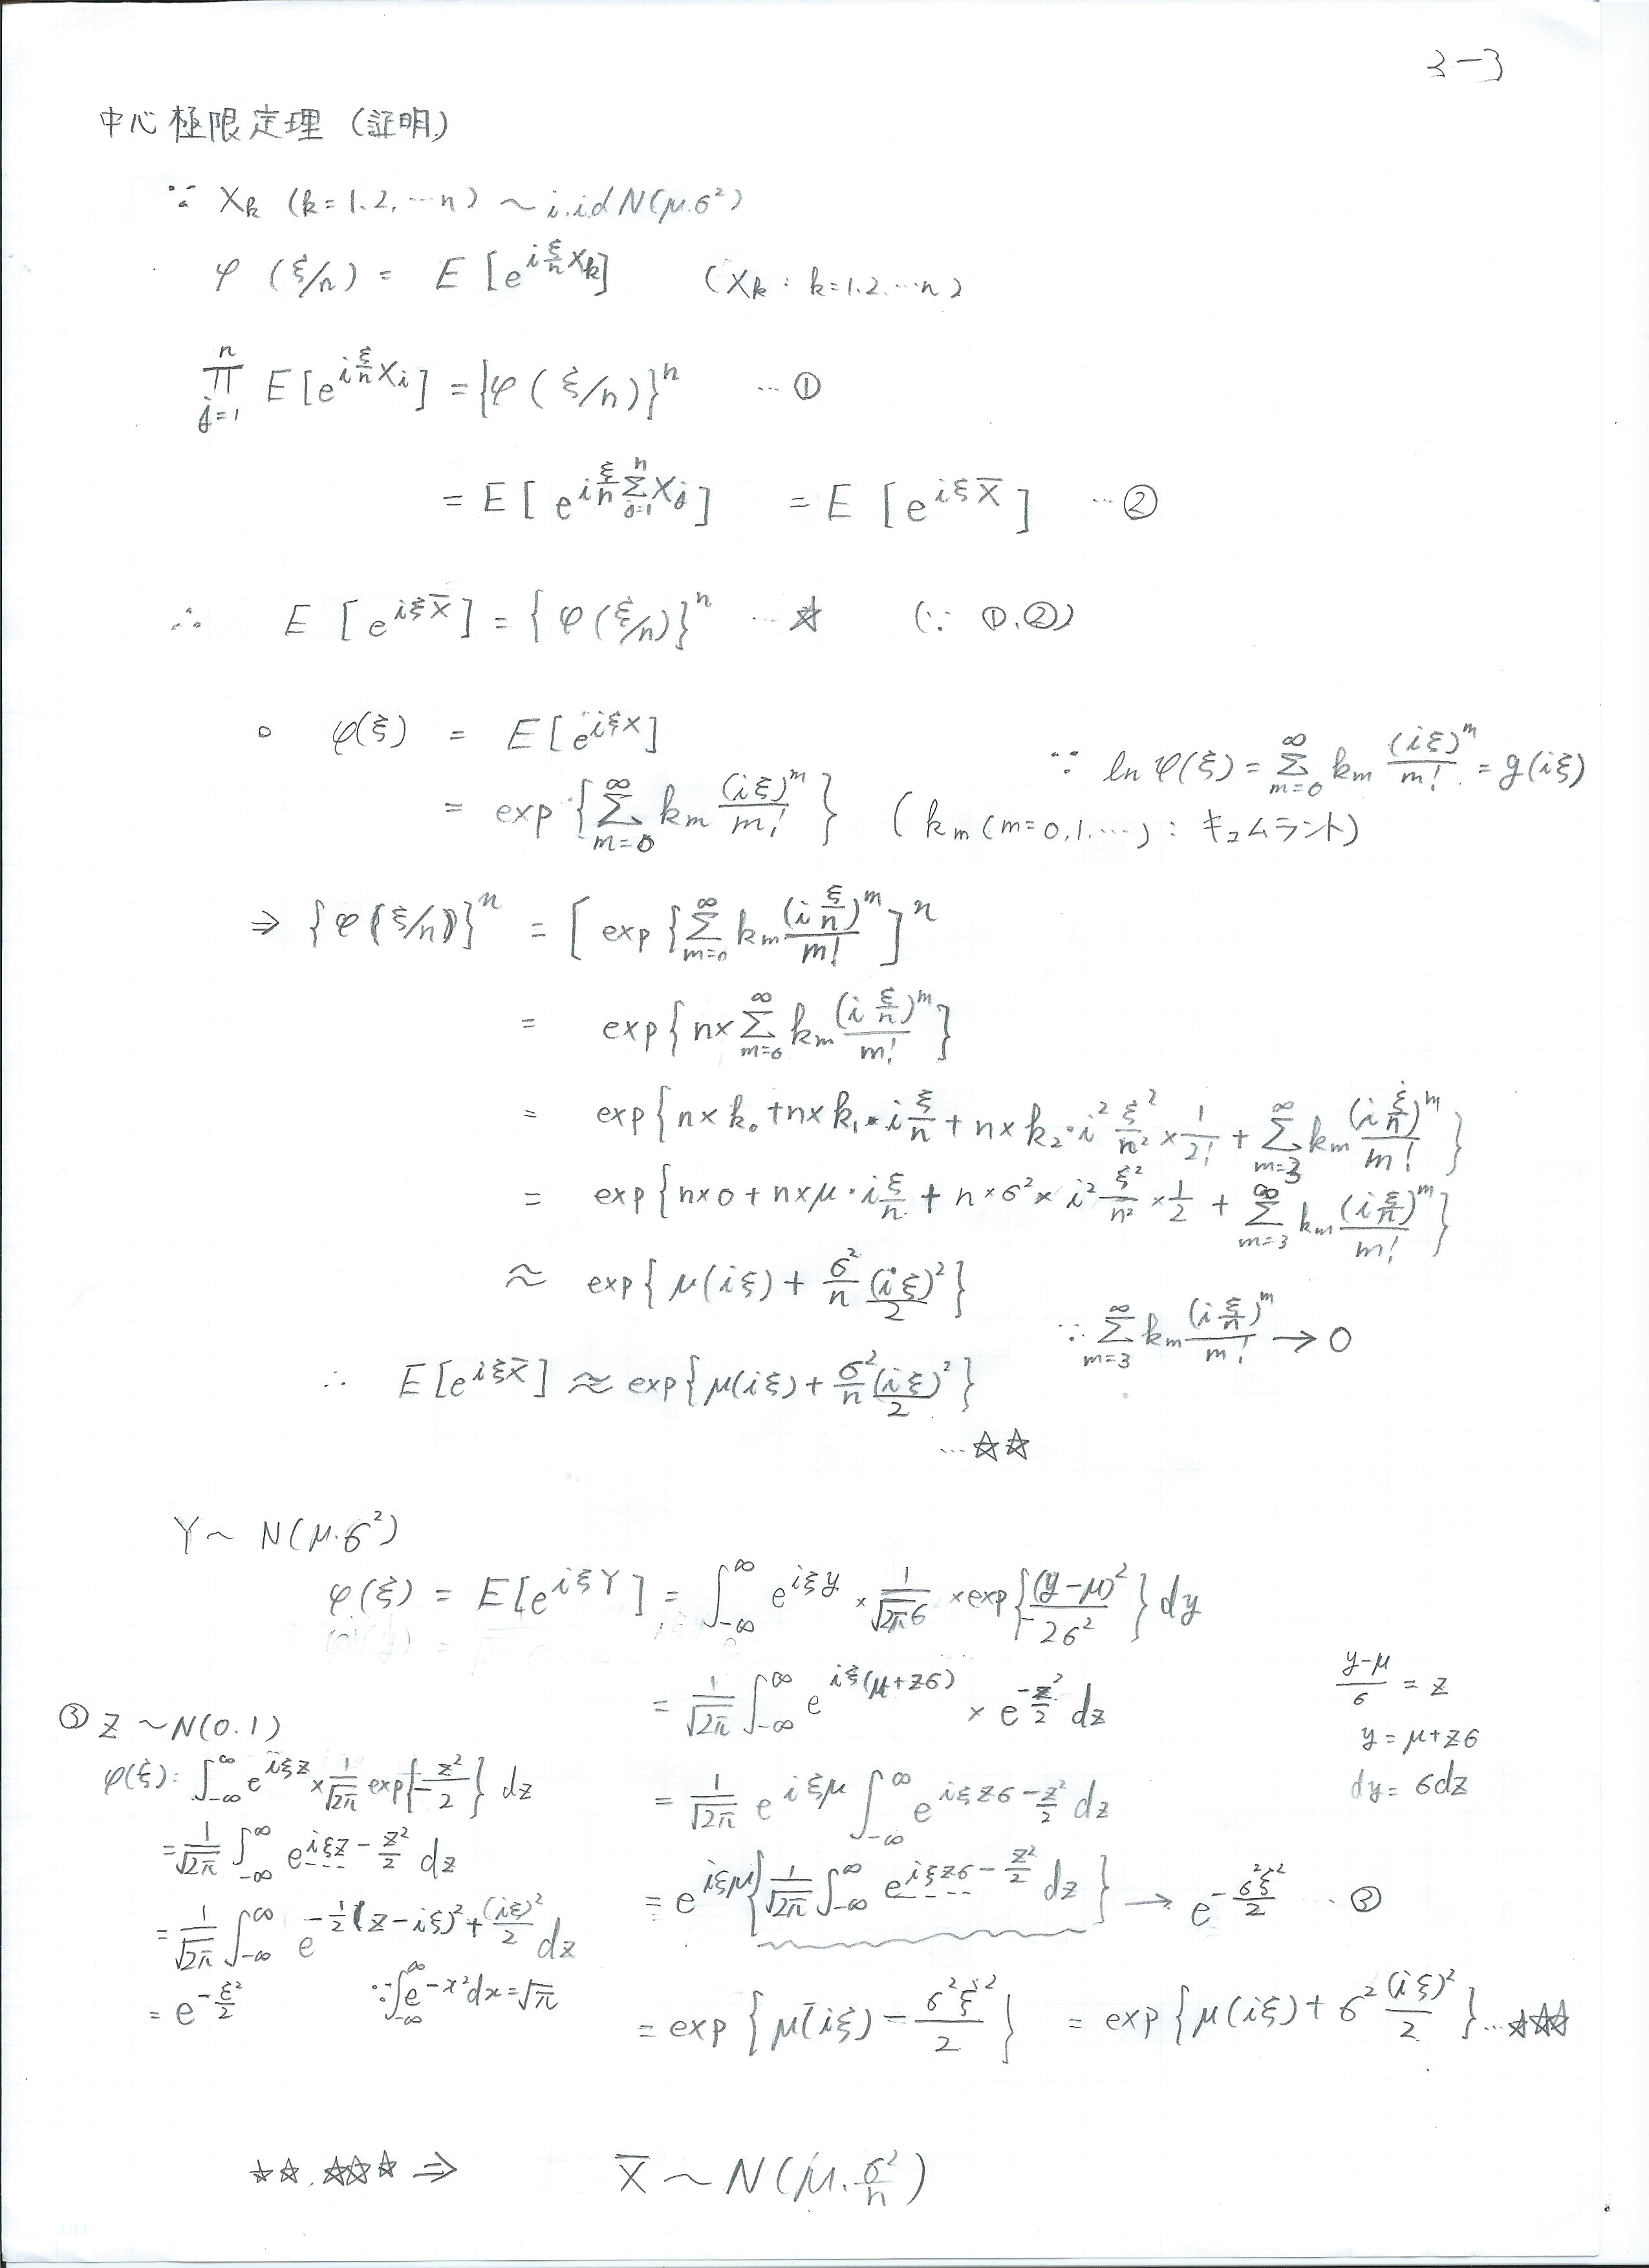 3-3
中心極限定理（証明）
∵ Xk (k=1.2.…n) ~ i.id N(μ.σ²)
φ(ξ/n) = E[e^{i ξ/n Xk}] (Xk : k=1.2.…n)
∏_{j=1}^{n} E[e^{i ξ/n Xi}] = {φ(ξ/n)}^n …①
= E[e^{i ξ/n Σ_{j=1}^{n} Xj}] = E[e^{iξX̄}] …②
∴ E[e^{iξX̄}] = {φ(ξ/n)}^n …☆ (∵ ①.②)
○ φ(ξ) = E[e^{iξX}]
= exp{Σ_{m=0}^{∞} km (iξ)^m/m!}
∵ ln φ(ξ) = Σ_{m=0}^{∞} km (iξ)^m/m! = g(iξ)
(km (m=0,1.…) : キュムラント)
⇒ {φ(ξ/n)}^n = [exp{Σ_{m=0}^{∞} km (i ξ/n)^m/m!]^n
= exp{n×Σ_{m=0}^{∞} km (i ξ/n)^m/m!}
= exp{n×k₀ + n×k₁・i ξ/n + n×k₂・i² ξ²/n² × 1/2! + Σ_{m=3}^{∞} km (i ξ/n)^m/m!}
= exp{n×0 + n×μ・i ξ/n + n×σ²×i² ξ²/n² × 1/2 + Σ_{m=3}^{∞} km (i ξ/n)^m/m!}
≈ exp{μ(iξ) + σ²/n (iξ)²/2}
∵ Σ_{m=3}^{∞} km (i ξ/n)^m/m! → 0
∴ E[e^{iξX̄}] ≈ exp{μ(iξ) + σ²/n (iξ)²/2}
…☆☆
Y ~ N(μ.σ²)
φ(ξ) = E[e^{iξY}] = ∫_{-∞}^{∞} e^{iξy} × 1/√2π σ × exp{-(y-μ)²/2σ²} dy
= 1/√2π ∫_{-∞}^{∞} e^{iξ(μ+zσ)} × e^{-z²/2} dz
= 1/√2π e^{iξμ} ∫_{-∞}^{∞} e^{iξzσ - z²/2} dz
= e^{iξμ} {1/√2π ∫_{-∞}^{∞} e^{iξzσ - z²/2} dz} → e^{-σ²ξ²/2} …③
= exp{μ(iξ) - σ²ξ²/2} = exp{μ(iξ) + σ² (iξ)²/2} …☆☆☆
(y-μ)/σ = z
y = μ+zσ
dy = σdz
③ Z ~ N(0.1)
φ(ξ): ∫_{-∞}^{∞} e^{iξz} × 1/√2π exp{-z²/2} dz
= 1/√2π ∫_{-∞}^{∞} e^{iξz - z²/2} dz
= 1/√2π ∫_{-∞}^{∞} e^{-1/2(z-iξ)² + (iξ)²/2} dz
= e^{-ξ²/2} ∵ ∫_{-∞}^{∞} e^{-x²} dx = √π
☆☆.☆☆☆ ⇒ X̄ ~ N(μ.σ²/n)